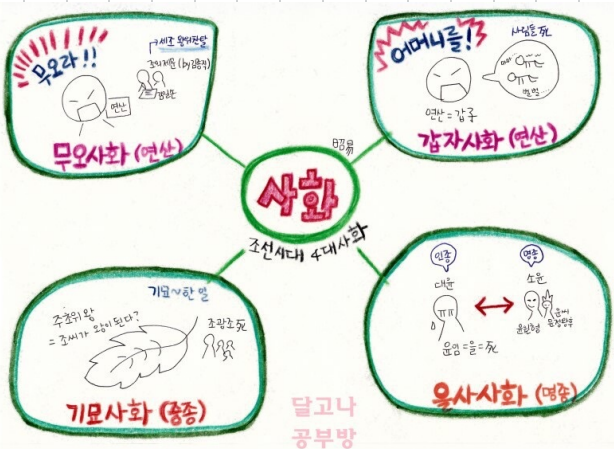 무오라!!
세조 왕위찬탈
조의제문 (by김종직)
연산
무오사화 (연산)
어머니를!
사림들 死
연산 = 갑룡
갑자사화 (연산)
사화
조선시대 4대사화
기묘~한 일
주초위왕
= 조씨가 왕이된다?
조광조 死
기묘사화 (중종)
인종
명종
대윤
소윤
윤임 = 을 = 死
윤원형
윤씨
문정왕후
을사사화 (명종)
달고나
공부방